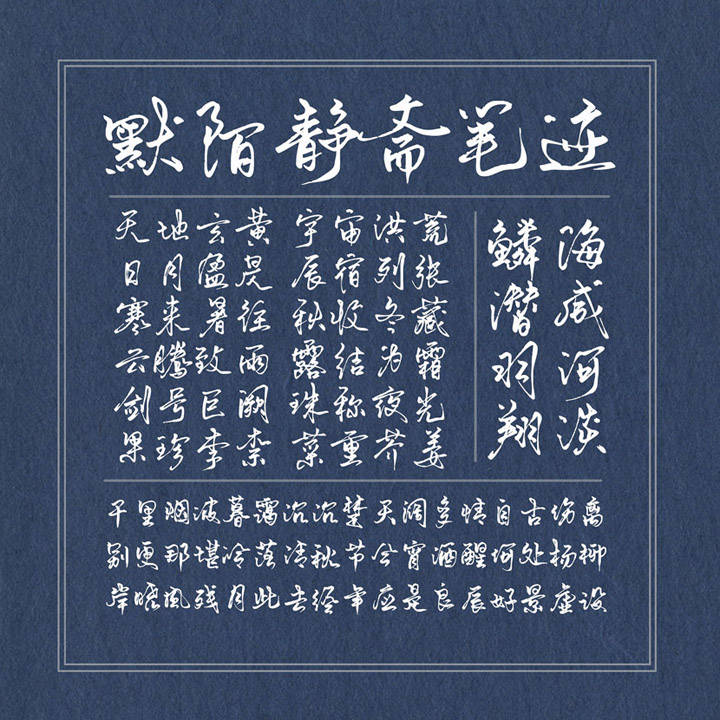 默陌静斋笔迹
天地玄黄 宇宙洪荒
日月盈昃 辰宿列张
寒来暑往 秋收冬藏
云腾致雨 露结为霜
剑号巨阙 珠称夜光
果珍李柰 菜重芥姜
海咸河淡
鳞潜羽翔
千里烟波暮霭沉沉楚天阔多情自古伤离
别更那堪冷落清秋节今宵酒醒何处杨柳
岸晓风残月此去经年应是良辰好景虚设